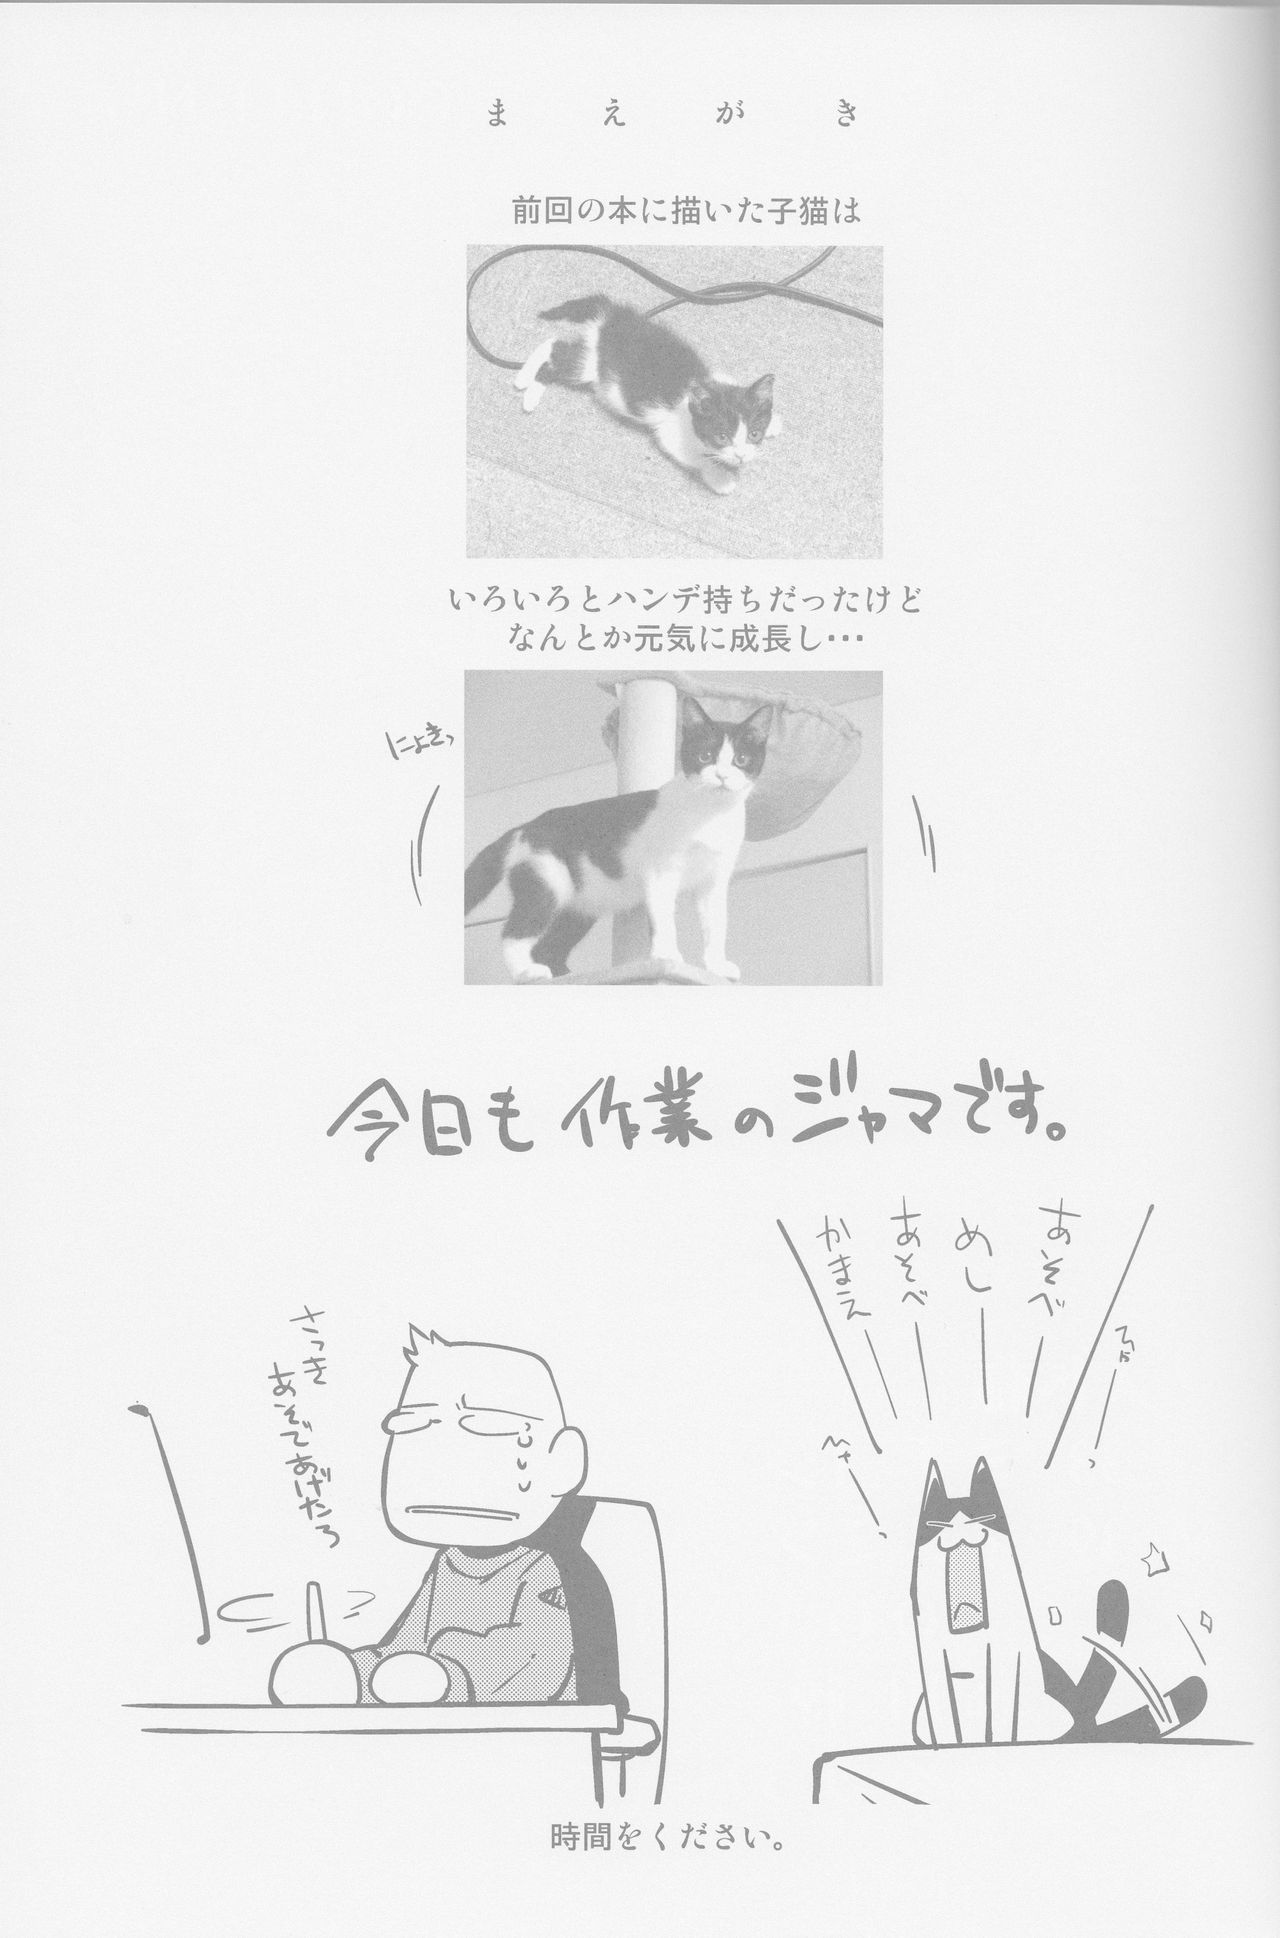 まえがき
前回の本に描いた子猫は
いろいろとハンデ持ちだったけど
なんとか元気に成長し･･･
にょきっ
今日も作業のジャマです。
あそべ
めし
あそべ
かまえ
さっき
あそであげたろ
時間をください。